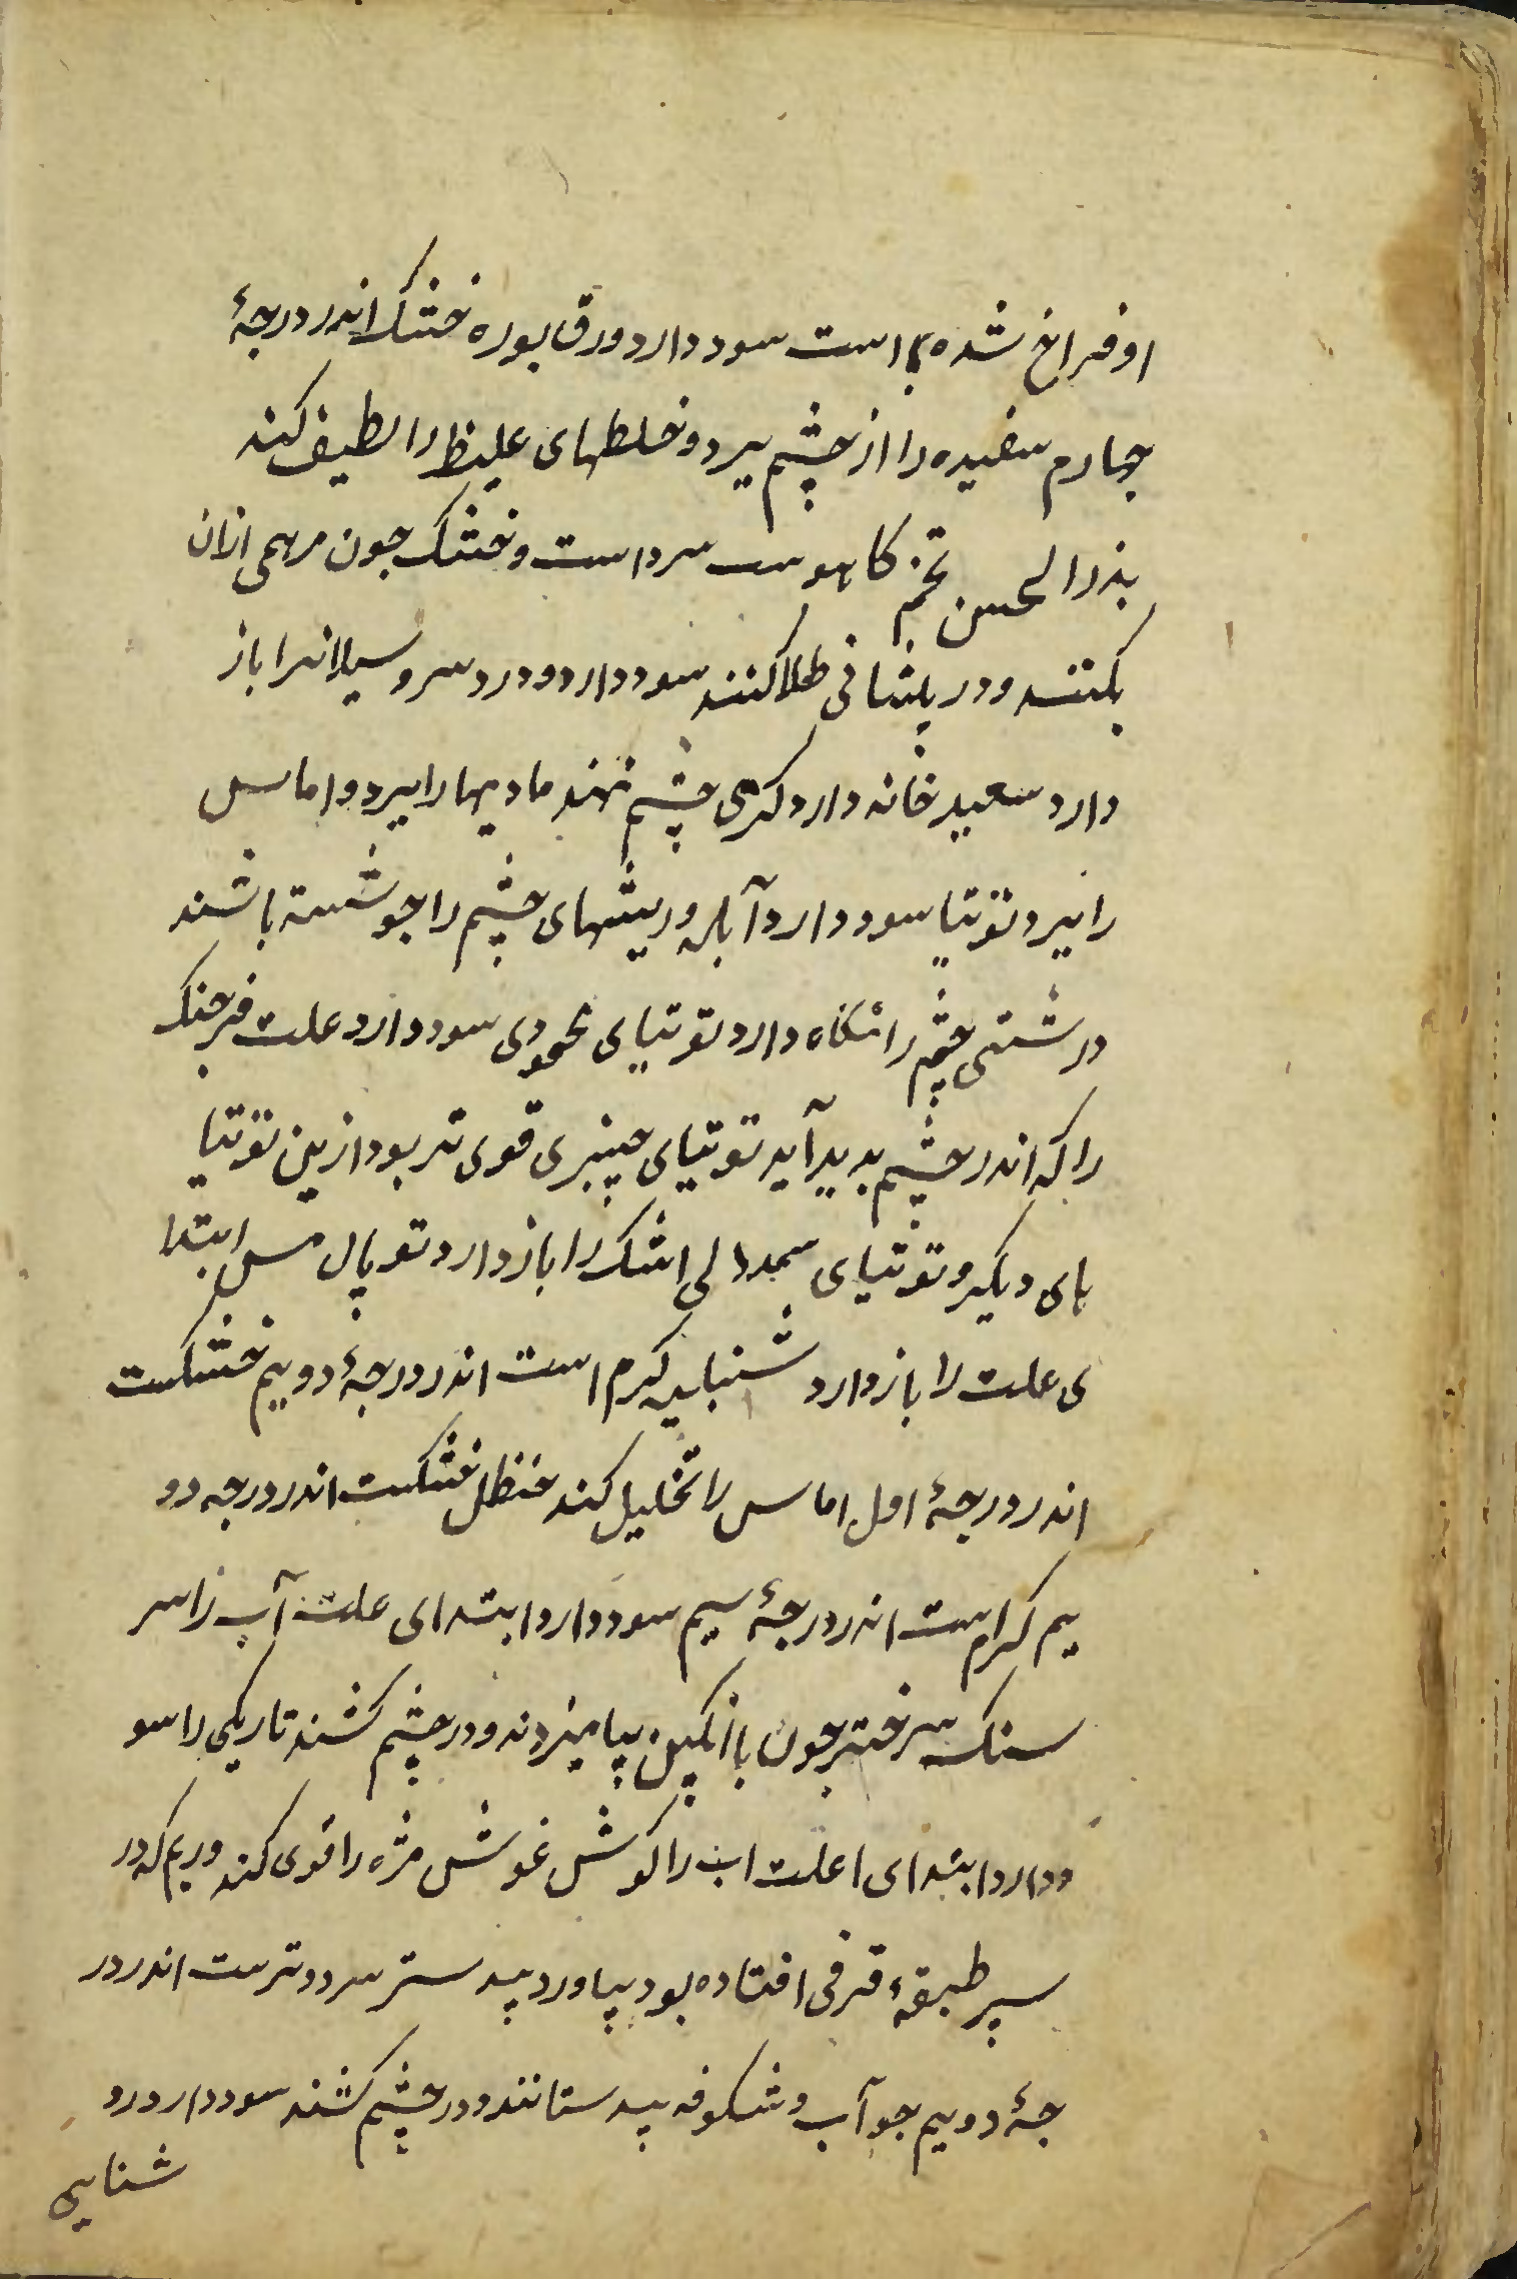 او فراغ شده است سود دارد ورق بوره خشک اندر درجهٔ
چهارم سفیده را از چشم ببرد و خلطهای غلیظ را لطیف کند
بذر الحس تخم کاهوست سرد است و خشک چون مرهمی ازان
بکنند و در پیشانی طلا کنند سود دارد و درد سر و سیلانرا باز
دارد سعید خانه دارد کری چشم نهند مادیها را ببرد و اماس
را نیرد توتیا سود دارد آبله و ریشهای چشم را جو شسته باشند
درشتی چشم را نکاه دارد توتیای محمودی سود دارد علت فرجنک
را که اندر چشم بدید آید توتیای چینبری قوی تر بود ازین توتیا
های دیکر و توتیای اشک را باز دارد توپال مس ابتدا
ی علت را باز دارد کرم است اندر درجهٔ دویم خشکست
اندر درجهٔ اول اماس را تحلیل کند حنظل خشکست اندر درجه دو
یم کرم است اندر درجهٔ سیم سود دارد ابتدای علت آب را سر
سنک سرختر چون با انکبین بیامیزدند و در چشم کشند تاریکی را سو
د دارد ابتدای اعلت اب را کوش غوش مژه را قوی کند وریم که در
سپر طبقهٔ قرفی افتاده بود بیاورد بید ستر سرد و ترست اندر در
جهٔ دویم جو آب و شکوفه بید ستانند و در چشم کشند سود دارد رو
شنایی